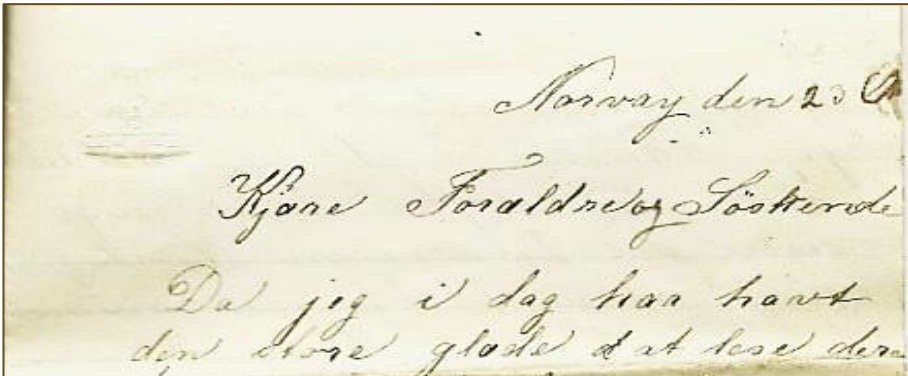 Norway den 23
Kjære Forældre og Söskende
Da jeg i dag har havt
den store glæde at lese dere